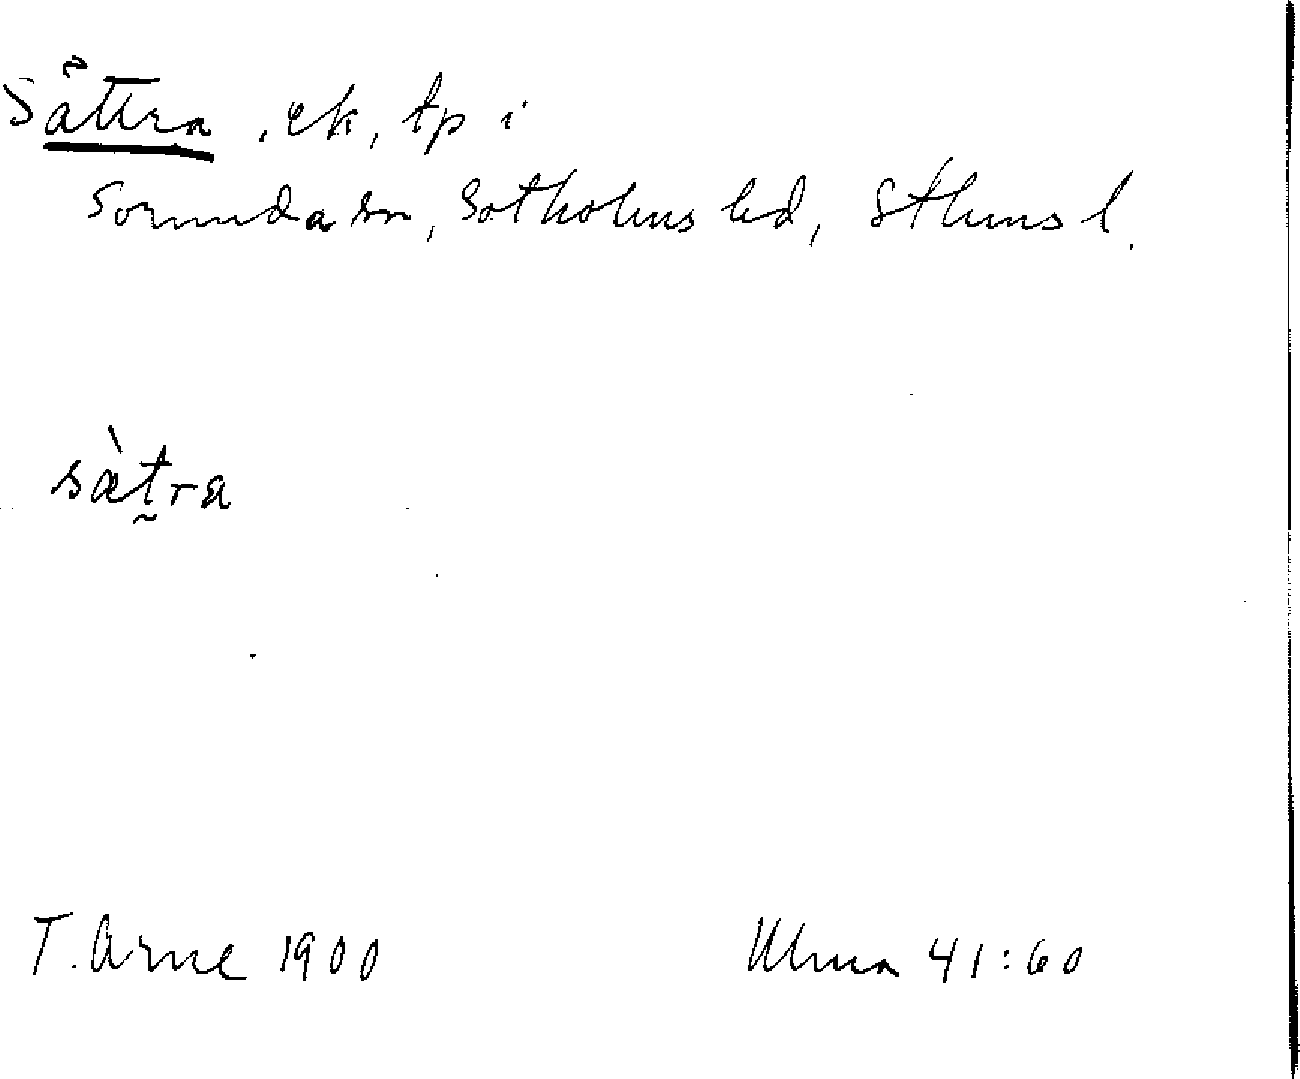 Sättra, ek, tp i
Sorunda sn, Sotholms hd, Sthms l.
sæ̀t̰ra
T. Arne 1900
Ulma 41:60